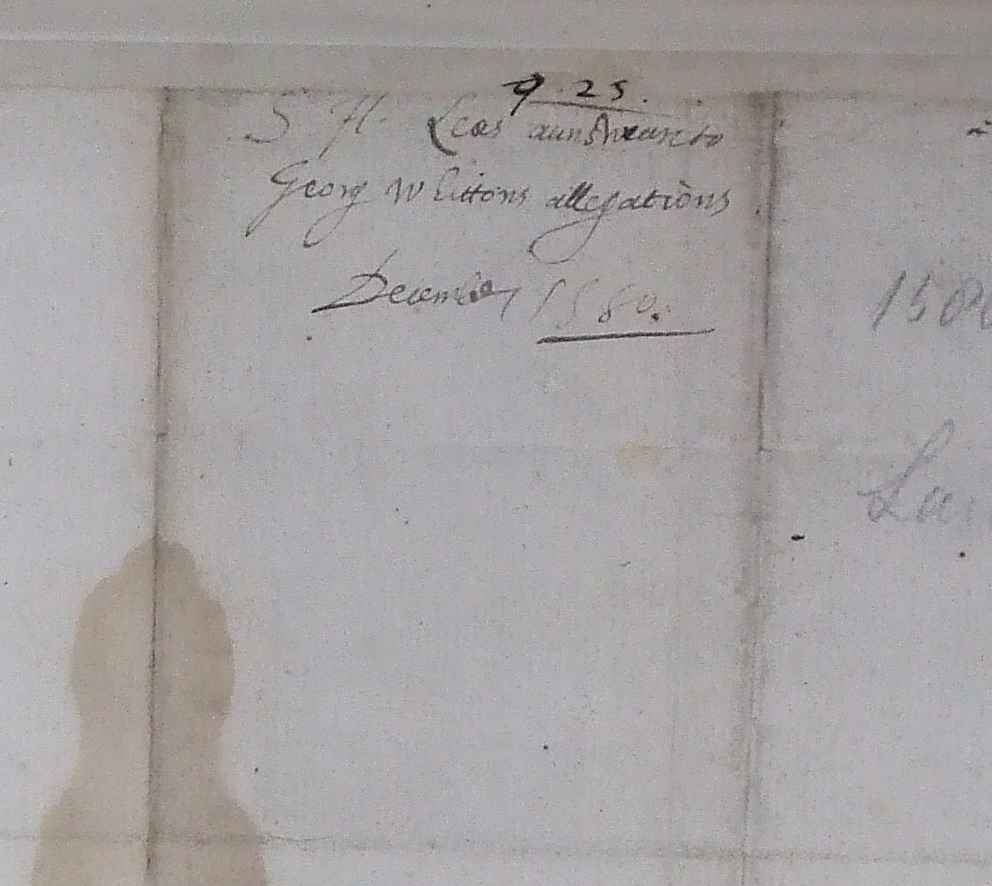 9. 25.
S H. Lees aunsweare to
Georg Whittons allegations
December 1580.
1580